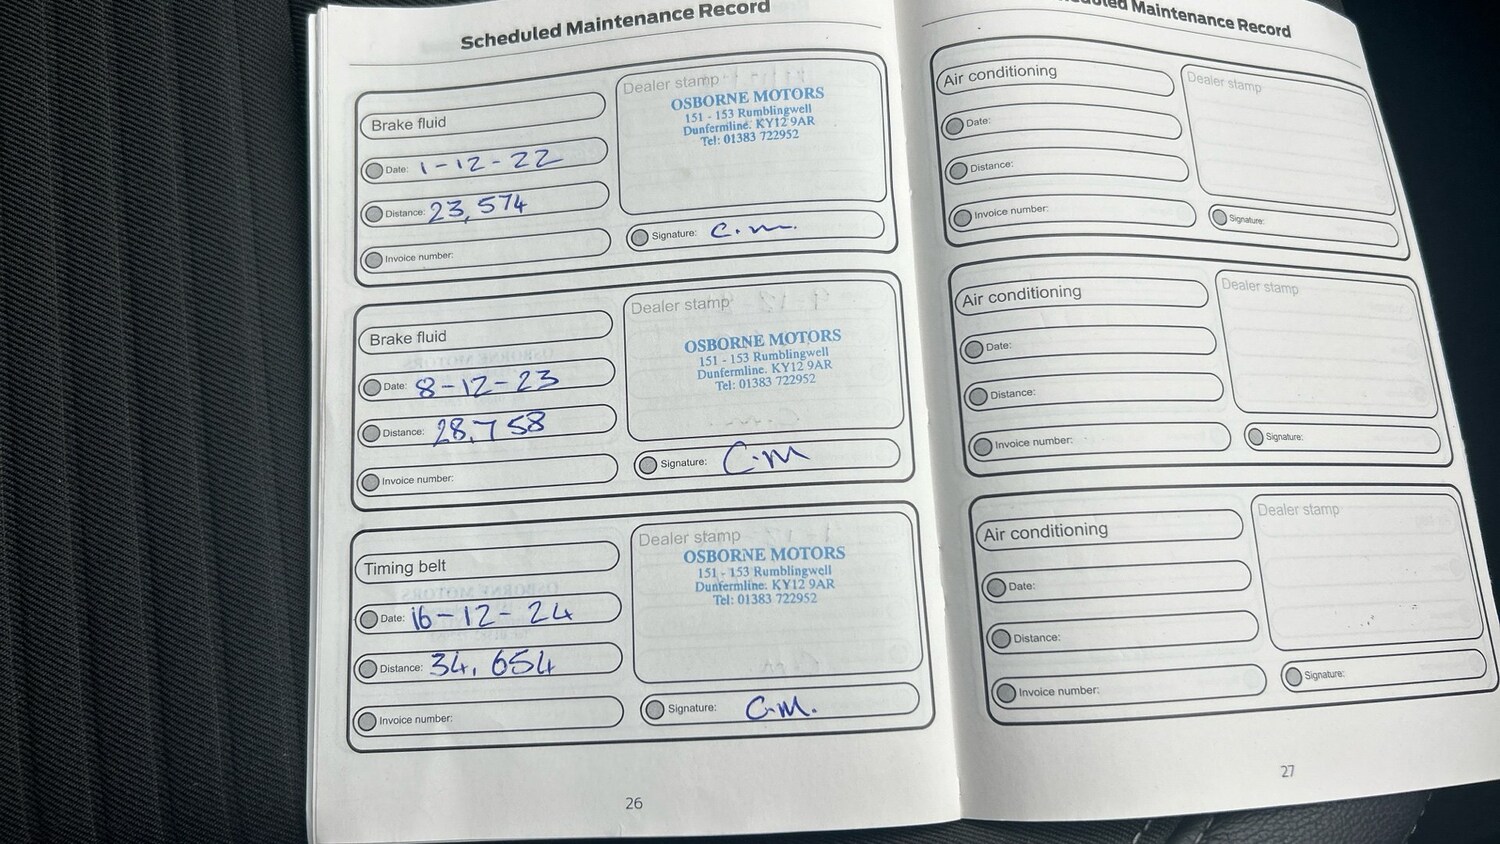 Scheduled Maintenance Record
Brake fluid
Date: 1-12-22
Distance: 23,574
Invoice number:
Dealer stamp
OSBORNE MOTORS
151 - 153 Rumblingwell
Dunfermline. KY12 9AR
Tel: 01383 722952
Signature: c.m.
Brake fluid
Date: 8-12-23
Distance: 28,758
Invoice number:
Dealer stamp
OSBORNE MOTORS
151 - 153 Rumblingwell
Dunfermline. KY12 9AR
Tel: 01383 722952
Signature: C.M
Timing belt
Date: 16-12-24
Distance: 34,654
Invoice number:
Dealer stamp
OSBORNE MOTORS
151 - 153 Rumblingwell
Dunfermline. KY12 9AR
Tel: 01383 722952
Signature: C.M.
26
Maintenance Record
Air conditioning
Date:
Distance:
Invoice number:
Dealer stamp
Signature:
Air conditioning
Date:
Distance:
Invoice number:
Dealer stamp
Signature:
Air conditioning
Date:
Distance:
Invoice number:
Dealer stamp
Signature:
27